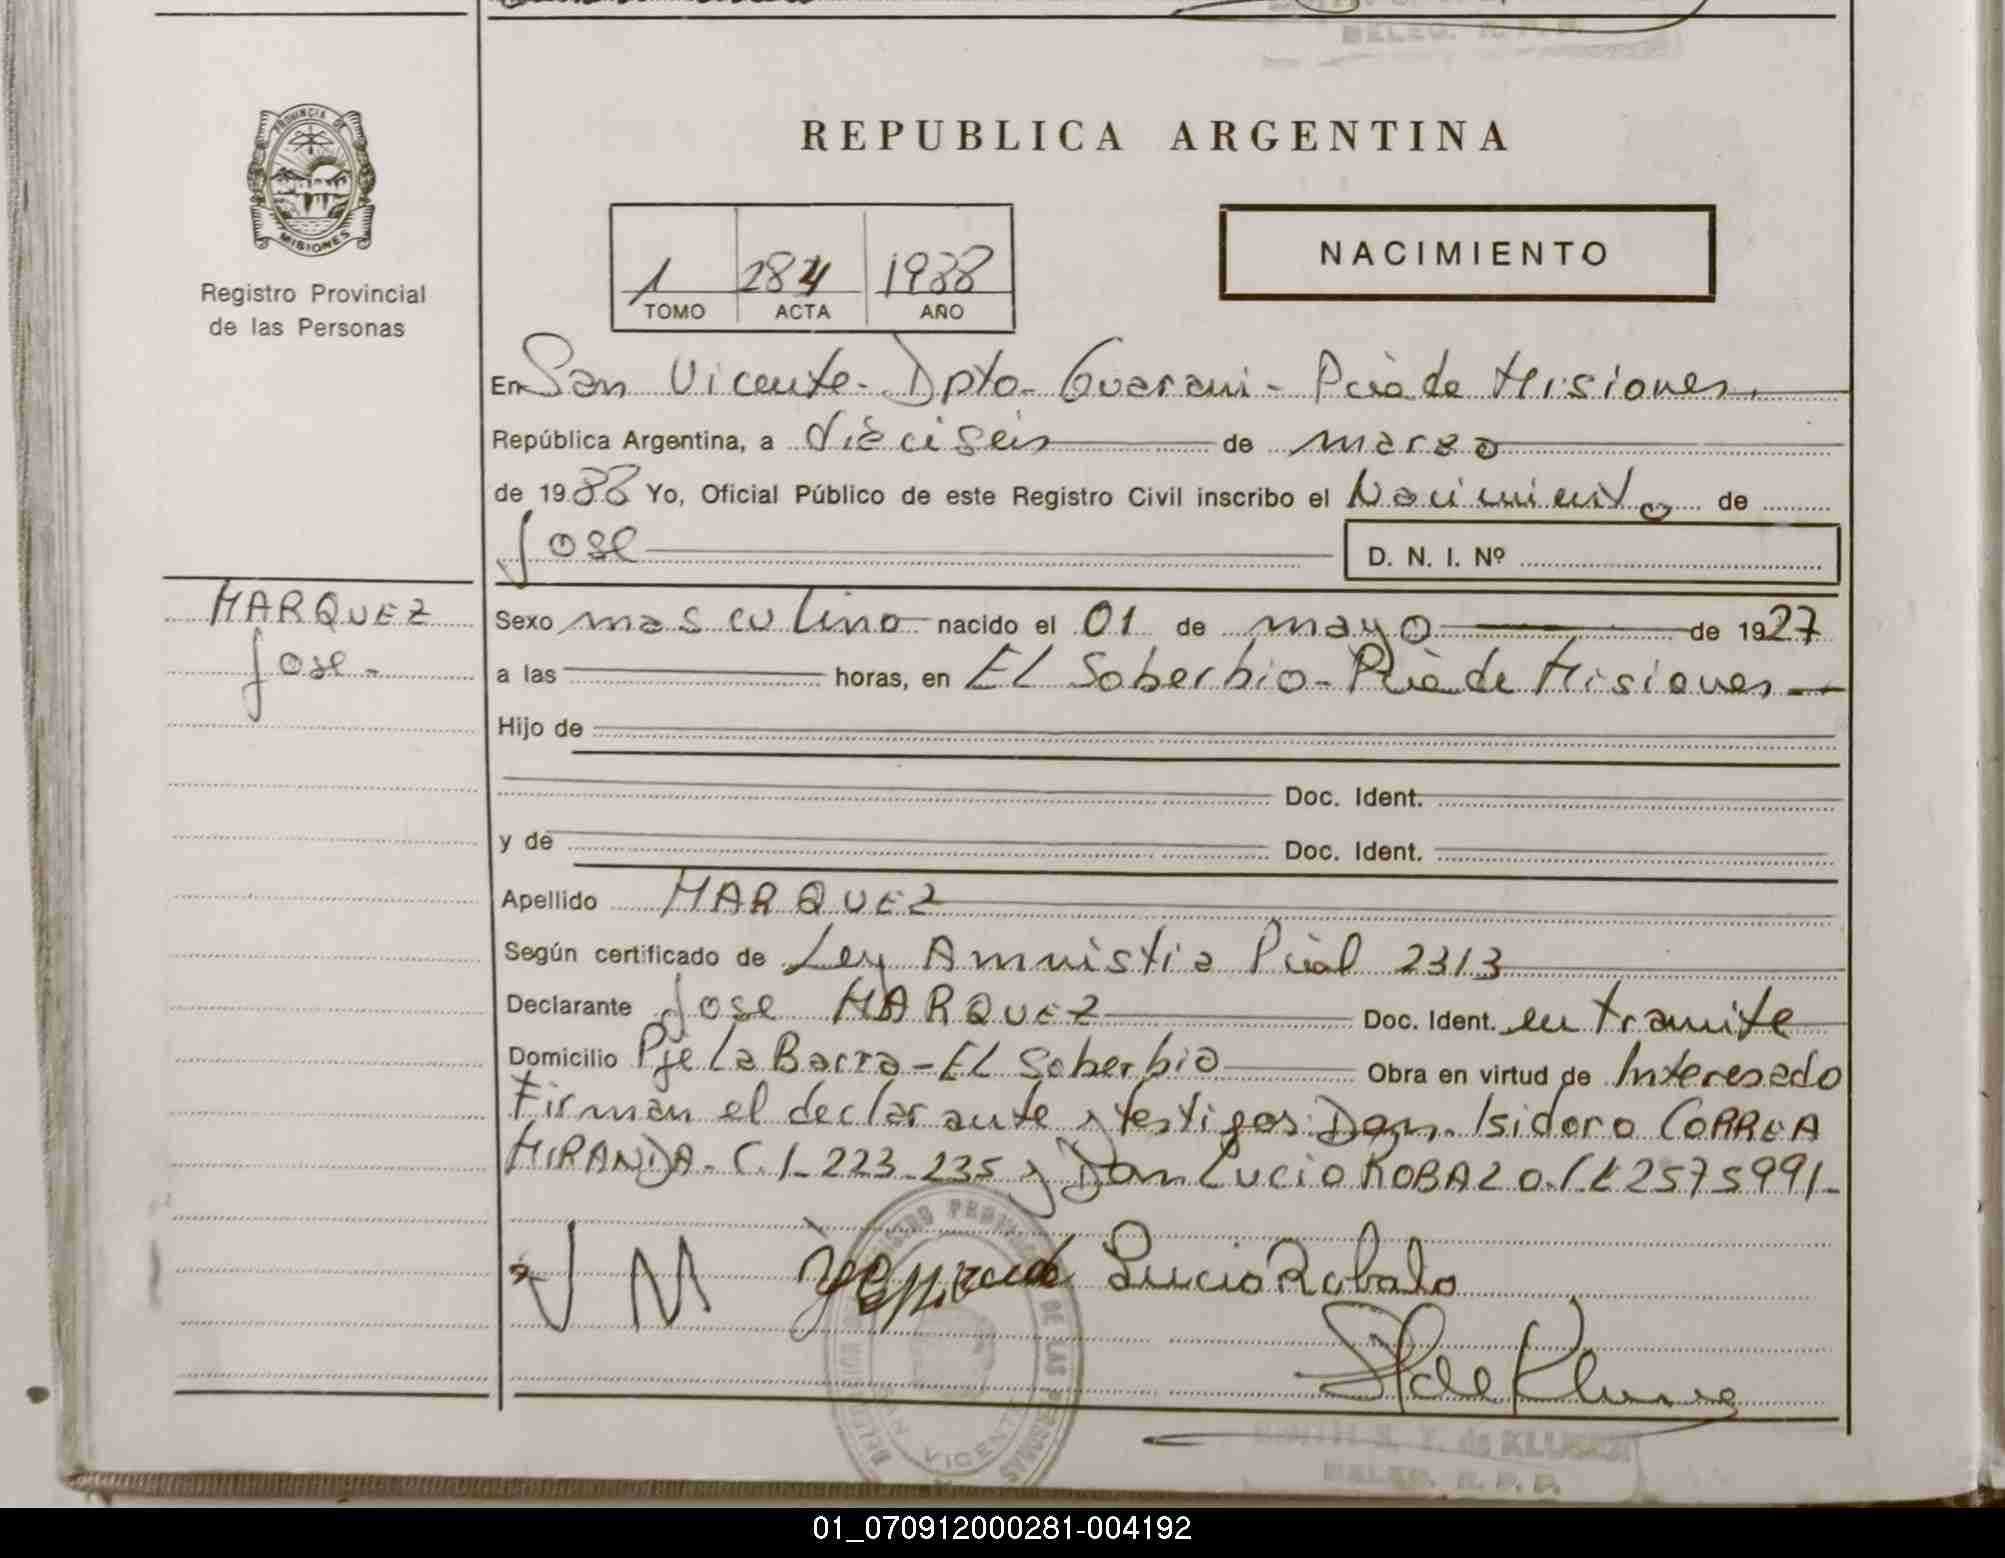 DELEG. R. P. P.
PROVINCIA DE
MISIONES
Registro Provincial
de las Personas
REPUBLICA ARGENTINA
1 284 1988
TOMO ACTA AÑO
NACIMIENTO
En San Vicente - Dpto - Guarani - Pcia de Misiones.
República Argentina, a dieciseis de marzo
de 1988 Yo, Oficial Público de este Registro Civil inscribo el Nacimiento de
Jose
D. N. I. Nº
MARQUEZ
Jose -
Sexo masculino nacido el 01 de mayo de 1927
a las horas, en EL Soberbio - Pcia de Misiones
Hijo de
Doc. Ident.
y de Doc. Ident.
Apellido MARQUEZ
Según certificado de Ley Amnistia Pcial 2313
Declarante Jose MARQUEZ Doc. Ident. en tramite
Domicilio Pje La Barra - EL Soberbio Obra en virtud de Interesado
Firman el declarante y testigos: Don. Isidoro CORREA
MIRANDA - C.I. 223-235 y Don Lucio ROBALO. C.I. 2575991-
J M Lucio Robalo
REGISTRO PROVINCIAL DE LAS PERSONAS
DELEGACION
SAN VICENTE
EDITH S. T. de KLUSENER
DELEG. R. P. P.
01_070912000281-004192